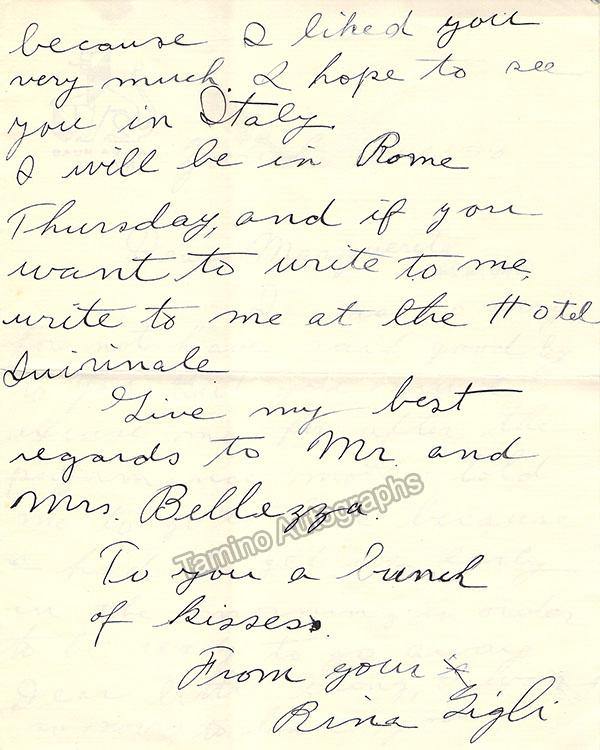 because I liked you
very much. I hope to see
you in Italy.
I will be in Rome
Thursday, and if you
want to write to me,
write to me at the Hotel
Quirinale
Give my best
regards to Mr. and
Mrs. Bellezza.
Tamino Autographs
To you a bunch
of kisses.
From your
Rina Gigli